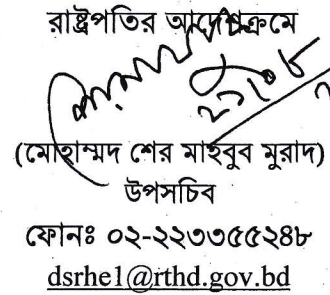 রাষ্ট্রপতির আদেশক্রমে
২১/০৮
(মোহাম্মদ শের মাহবুব মুরাদ)
উপসচিব
ফোনঃ ০২-২২৩৩৫৫২৪৮
dsrhe1@rthd.gov.bd